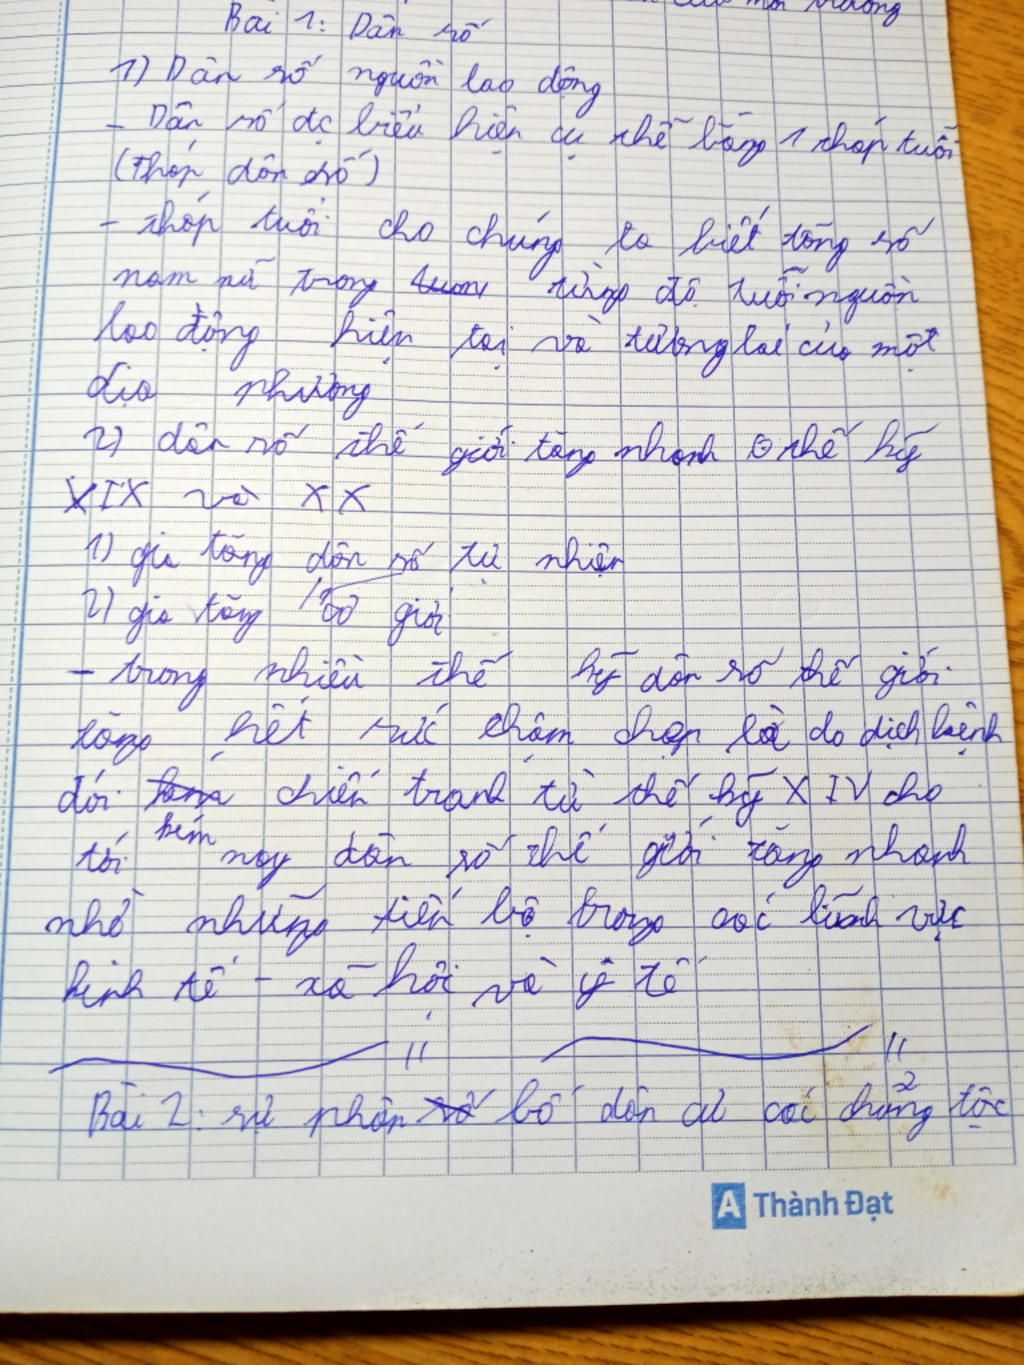 của môi trường
Bài 1: Dân số
1) Dân số nguồn lao động
- Dân số đc biểu hiện cụ thể bằng 1 tháp tuổi
(tháp dân số)
- tháp tuổi cho chúng ta biết tổng số
nam nữ trong từng độ tuổi nguồn
lao động hiện tại và tương lai của một
địa phương
2) dân số thế giới tăng nhanh ở thế kỹ
XIX và XX
1) gia tăng dân số tự nhiên
2) gia tăng cơ giới
- trong nhiều thế kỹ dân số thế giới
tăng hết sức chậm chạp là do dịch bệnh
đói chiến tranh từ thế kỹ XIV cho
tới nay dân số thế giới tăng nhanh
nhờ những tiến bộ trong các lĩnh vực
kinh tế - xã hội và y tế
Bài 2: sự phân bố dân cư các chủng tộc
A Thành Đạt